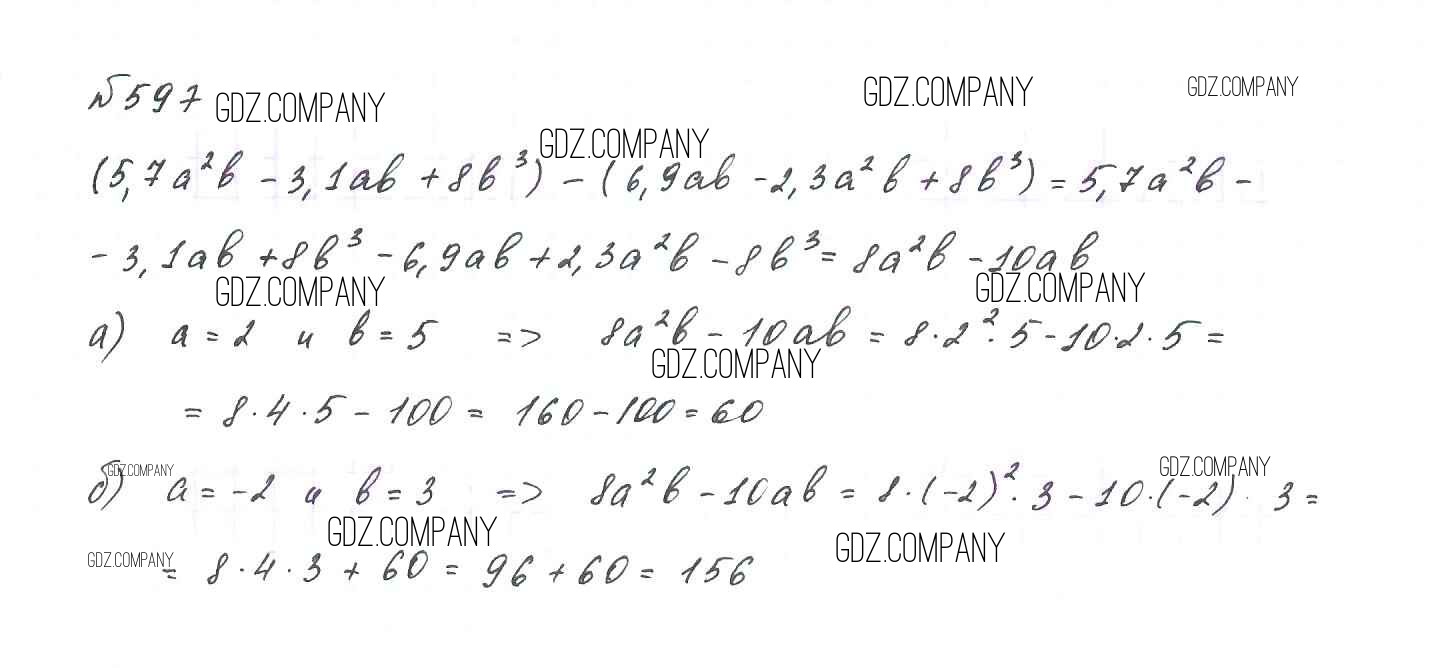 №597 GDZ.COMPANY GDZ.COMPANY GDZ.COMPANY
GDZ.COMPANY
(5,7a²b - 3,1ab + 8b³) - (6,9ab - 2,3a²b + 8b³) = 5,7a²b -
- 3,1ab + 8b³ - 6,9ab + 2,3a²b - 8b³ = 8a²b - 10ab
GDZ.COMPANY GDZ.COMPANY
а) a = 2 и b = 5 => 8a²b - 10ab = 8·2²·5 - 10·2·5 =
GDZ.COMPANY
= 8·4·5 - 100 = 160 - 100 = 60
GDZ.COMPANY GDZ.COMPANY
б) a = -2 и b = 3 => 8a²b - 10ab = 8·(-2)²·3 - 10·(-2)·3 =
GDZ.COMPANY GDZ.COMPANY
GDZ.COMPANY
= 8·4·3 + 60 = 96 + 60 = 156